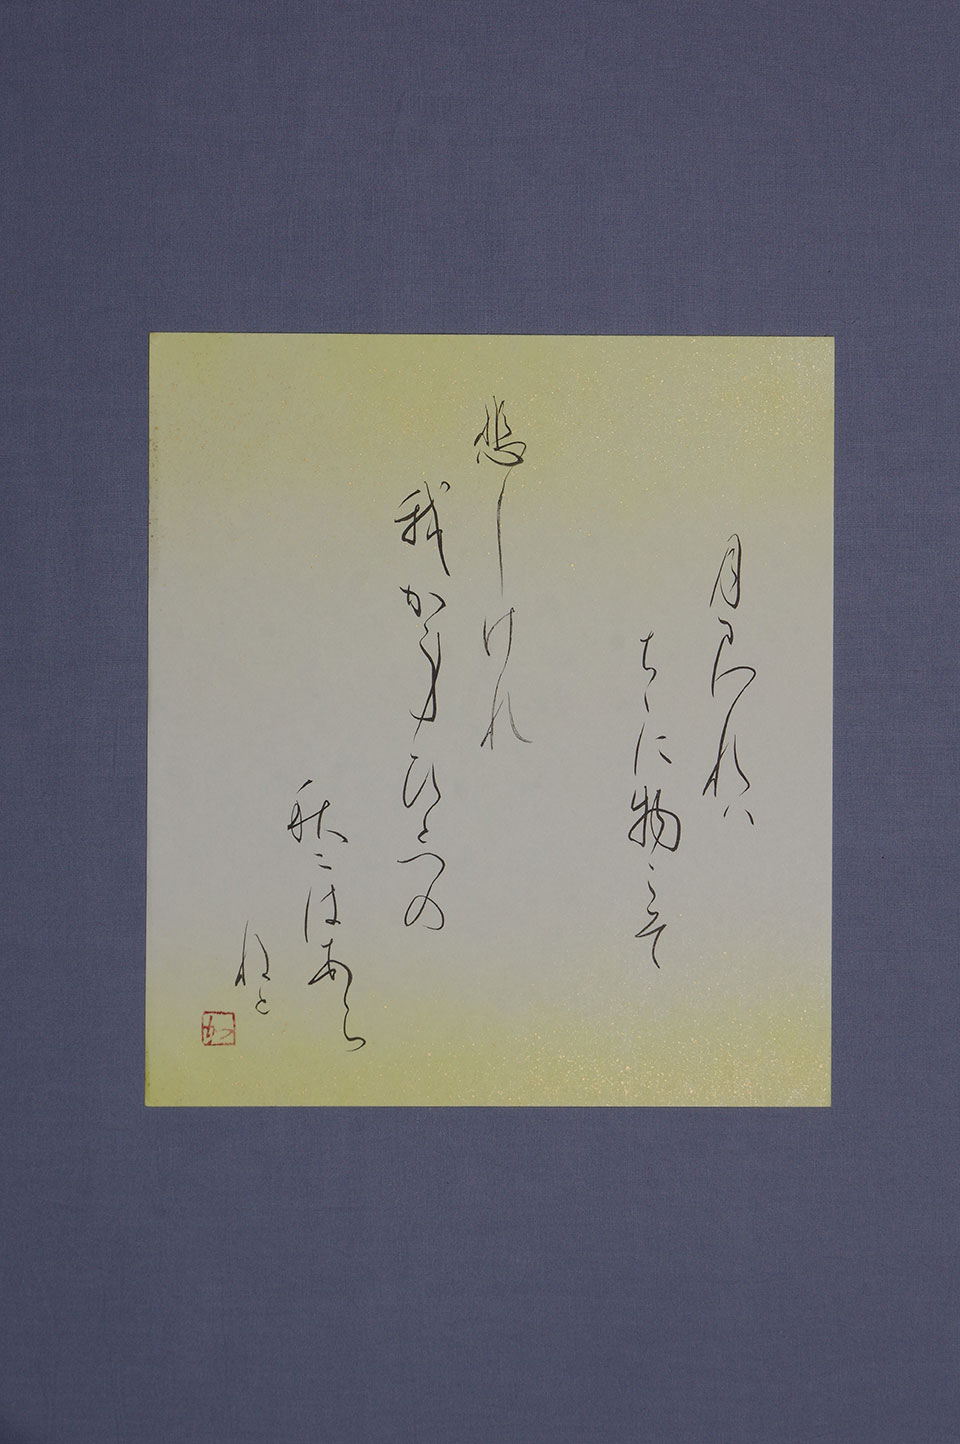 月見れは
ちゝに物こそ
悲しけれ
我か身ひとつの
秋にはあら
ねと